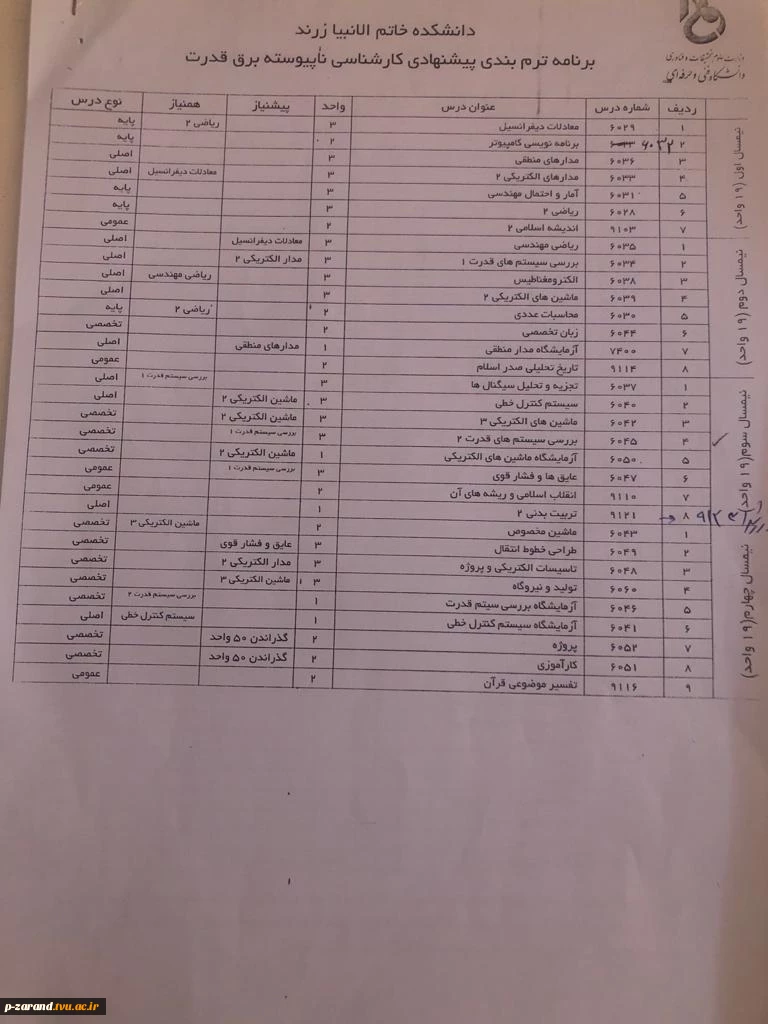 دانشکده خاتم الانبیا زرند
برنامه ترم بندی پیشنهادی کارشناسی ناپیوسته برق قدرت
وزارت علوم تحقیقات و فناوری
دانشگاه فنی و حرفه‌ای
ردیف شماره درس عنوان درس واحد پیشنیاز همنیاز نوع درس
نیمسال اول (۱۹ واحد)
۱ ۶۰۲۹ معادلات دیفرانسیل ۳ ریاضی ۲ پایه
۲ ۶۰۳۲ برنامه نویسی کامپیوتر ۲ پایه
۳ ۶۰۳۶ مدارهای منطقی ۳ اصلی
۴ ۶۰۳۳ مدارهای الکتریکی ۲ ۳ معادلات دیفرانسیل اصلی
۵ ۶۰۳۱ آمار و احتمال مهندسی ۳ پایه
۶ ۶۰۲۸ ریاضی ۲ ۳ پایه
۷ ۹۱۰۳ اندیشه اسلامی ۲ ۲ عمومی
نیمسال دوم (۱۹ واحد)
۱ ۶۰۳۵ ریاضی مهندسی ۳ معادلات دیفرانسیل اصلی
۲ ۶۰۳۴ بررسی سیستم های قدرت ۱ ۳ مدار الکتریکی ۲ اصلی
۳ ۶۰۳۸ الکترومغناطیس ۳ ریاضی مهندسی اصلی
۴ ۶۰۳۹ ماشین های الکتریکی ۲ ۳ اصلی
۵ ۶۰۳۰ محاسبات عددی ۲ ریاضی ۲ پایه
۶ ۶۰۴۴ زبان تخصصی ۲ تخصصی
۷ ۷۴۰۰ آزمایشگاه مدار منطقی ۱ مدارهای منطقی اصلی
۸ ۹۱۱۴ تاریخ تحلیلی صدر اسلام ۲ عمومی
نیمسال سوم (۱۹ واحد)
۱ ۶۰۳۷ تجزیه و تحلیل سیگنال ها ۳ بررسی سیستم قدرت ۱ اصلی
۲ ۶۰۴۰ سیستم کنترل خطی ۳ ماشین الکتریکی ۲ اصلی
۳ ۶۰۴۲ ماشین های الکتریکی ۳ ۳ ماشین الکتریکی ۲ تخصصی
۴ ۶۰۴۵ بررسی سیستم های قدرت ۲ ۳ بررسی سیستم قدرت ۱ تخصصی
۵ ۶۰۵۰ آزمایشگاه ماشین های الکتریکی ۱ ماشین الکتریکی ۲ تخصصی
۶ ۶۰۴۷ عایق ها و فشار قوی ۳ بررسی سیستم قدرت ۱ عمومی
۷ ۹۱۱۰ انقلاب اسلامی و ریشه های آن ۲ عمومی
۸ ۹۱۲۱ تربیت بدنی ۲ ۱ اصلی
نیمسال چهارم (۱۹ واحد)
۱ ۶۰۴۳ ماشین مخصوص ۲ ماشین الکتریکی ۳ تخصصی
۲ ۶۰۴۹ طراحی خطوط انتقال ۳ عایق و فشار قوی تخصصی
۳ ۶۰۴۸ تاسیسات الکتریکی و پروژه ۳ مدار الکتریکی ۲ تخصصی
۴ ۶۰۶۰ تولید و نیروگاه ۳ ماشین الکتریکی ۳ تخصصی
۵ ۶۰۴۶ آزمایشگاه بررسی سیتم قدرت ۱ بررسی سیستم قدرت ۲ تخصصی
۶ ۶۰۴۱ آزمایشگاه سیستم کنترل خطی ۱ سیستم کنترل خطی اصلی
۷ ۶۰۵۲ پروژه ۲ گذراندن ۵۰ واحد تخصصی
۸ ۶۰۵۱ کارآموزی ۲ گذراندن ۵۰ واحد تخصصی
۹ ۹۱۱۶ تفسیر موضوعی قرآن ۲ عمومی
p-zarand.tvu.ac.ir